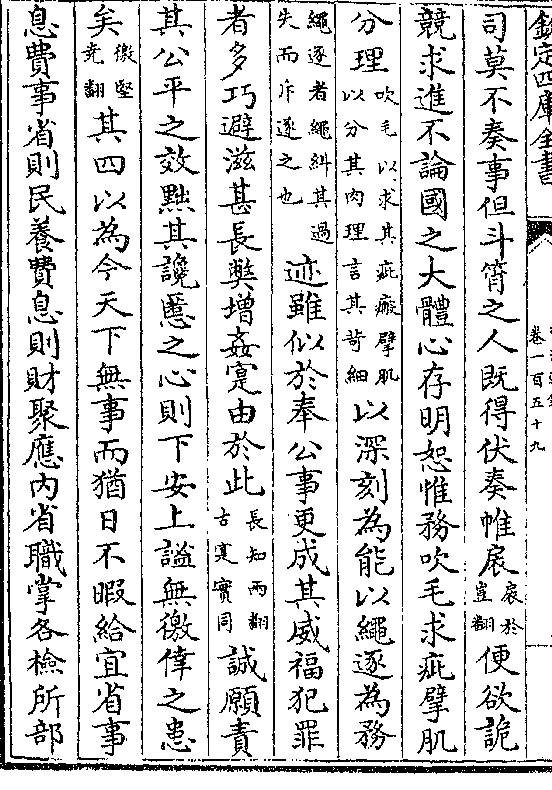 欽定四庫全書
卷一百五十九
司莫不奏事但斗筲之人既得伏奏帷扆扆於豈翻便欲詭
競求進不論國之大體心存明恕惟務吹毛求疵擘肌
分理吹毛以求其疵瘢擘肌以分其肉理言其苛細以深刻為能以繩逐為務
繩逐者繩糾其過失而斥逐之也迹雖似於奉公事更成其威福犯罪
者多巧避滋甚長獘增姦寔由於此長知兩翻古寔實同誠願責
其公平之效黜其讒慝之心則下安上謐無徼倖之患
矣徼堅堯翻其四以為今天下無事而猶日不暇給宜省事
息費事省則民養費息則財聚應內省職掌各檢所部